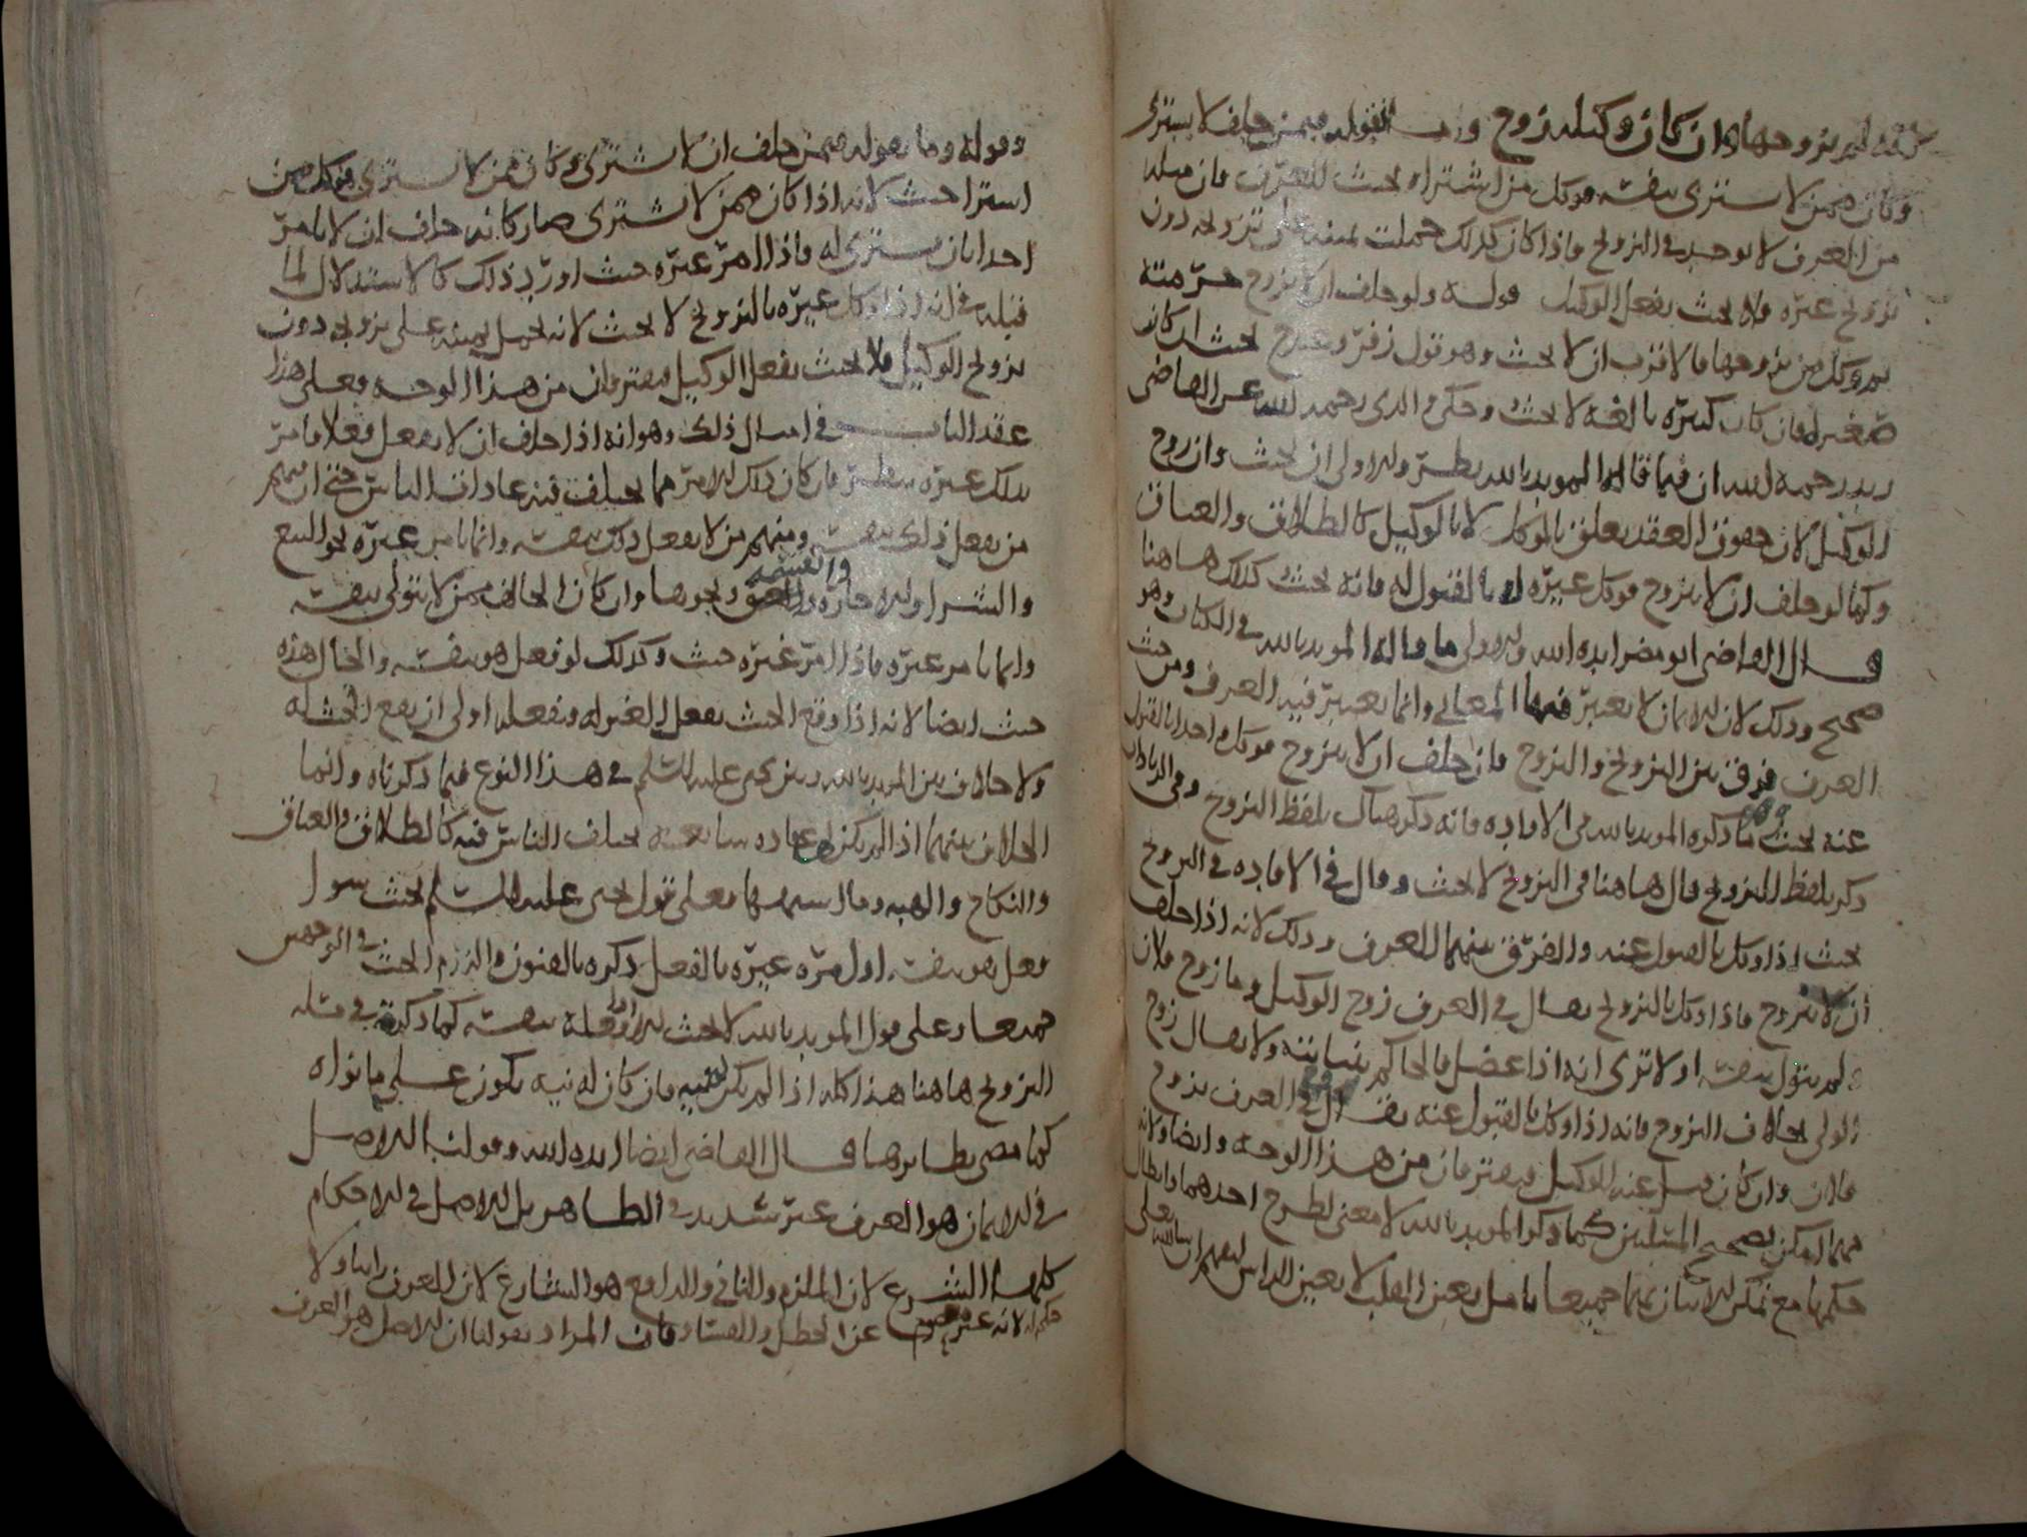 لم يزوجها وان كان وكيله زوج وما نقوله فيمن حلف لا يشترى
وكان ممن لا يشترى بنفسه فوكل من اشتراه يحنث للعرف فان مثله
من العرف لا يوجد في التزويج فاذا كان كذلك حملت يمينه على تزويجه دون
تزويج غيره فلا يحنث بفعل الوكيل قوله ولو حلف ان لا يزوج حرمته
ثم وكل من يزوجها فالاقرب ان لا يحنث وهو قول زفر يحنث ان كانت
صغيرة فان كانت كبيرة بالغة لا يحنث وحكى والدى رحمه الله عن القاضى
زيد رحمه الله ان فيما قاله المويد بالله نظر والاولى ان يحنث وان زوج
الوكيل لان حقوق العقد يعلق بالموكل لا بالوكيل كالطلاق والعتاق
وكما لو حلف ان لا يتزوج فوكل غيره بالقبول له فانه يحنث كذلك هاهنا
قال القاضى ابو مضر ايده الله والاولى ما قاله المويد بالله في الكتاب وهو
صحيح وذلك لان الايمان لا يعتبر فيها المعانى وانما يعتبر فيه العرف ومن حيث
العرف فرق بين التزويج والتزوج فان حلف ان لا يتزوج فوكل احدا بالقبول
عنه يحنث ما ذكره المويد بالله فى الافاده فانه ذكر هناك بلفظ التزوج وفى الزيادات
ذكر بلفظ التزويج قال هاهنا فى التزويج لا يحنث وقال في الافاده في التزوج
يحنث اذا وكل بالقبول عنه والفرق بينهما العرف وذلك لانه اذا حلف
ان لا يزوج فاذا وكل بالتزويج يقال في العرف زوج الوكيل وما زوج فلان
ولم يتول بنفسه اولا ترى انه اذا عضل فالحاكم ولا يقال زوج
الولى بخلاف التزوج فانه اذا وكل بالقبول عنه يقال في العرف تزوج
فلان وان كان قبل عنه الوكيل فيفترقان من هذا الوجه وايضا ولانه
مهما امكن تصحيح المسئلتين كما ذكر المويد بالله لا معنى لطرح احدهما وابطال
حكمها مع تمكن الاتيان بهما جميعا تامل بعين القلب لا بعين الراس ليفهم ان شا الله تعلى
وقوله وما نقوله فيمن حلف ان لا يشترى وكان ممن لا يشترى فوكل من
اشترا حنث لانه اذا كان ممن لا يشترى صار كانه حلف ان لا يامر
احدا بان يشترى له فاذا امر غيره حنث اورد ذلك كالاستدلال لما
قبله في انه اذا وكل غيره بالتزويج لا يحنث لانه تحمل يمينه على تزويجه دون
تزويج الوكيل فلا يحنث بفعل الوكيل فيفترقان من هذا الوجه فعلى هذا
عقد الباب في امثال ذلك وهو انه اذا حلف ان لا يفعل فعلا فامر
بذلك غيره ينظر فان كان ذلك الامر مما يختلف فيه عادات الناس حتى ان منهم
من يفعل ذلك بنفسه ومنهم من لا يفعل ذلك بنفسه وانما يامر غيره نحو البيع
والشرا والاجاره والقسمه ونحوها وان كان الحالف ممن لا يتولى بنفسه
وانما يامر غيره فاذا امر غيره حنث وكذلك لو فعل هو بنفسه والحال هذه
حنث ايضا لانه اذا وقع الحنث بفعل الغير له فبفعله اولى ان يقع الحنث له
ولا خلاف بين المويد بالله وبين يحيى عليه السلم في هذا النوع فيما ذكرناه وانما
الخلاف بينهما اذا لم يكن عاده يختلف الناس فيه كالطلاق والعتاق
والنكاح والهبه وما فعلى قول يحيى عليه السلم يحنث سوا
فعل هو بنفسه او امره غيره بالفعل ذكره بالفنون والزم الحنث في الوجهين
جميعا وعلى قول المويد بالله لا يحنث الا اذا فعله بنفسه كما ذكره في مثله
التزويج هاهنا هذا كله اذا لم يكن له نيه فان كان له نيه يكون على ما نواه
كما مضى نظايرها قال القاضى ايضا ايده الله وقولنا الاصل
في الايمان هو العرف غير شديد في الظاهر بل الاصل في الاحكام
كلها الشرع لان الملزم والنافى والدافع هو الشارع لان العرف ولا
حكم له لانه غير معصوم عن الخطل والفساد فان المراد بقولنا ان الاصل هو العرف